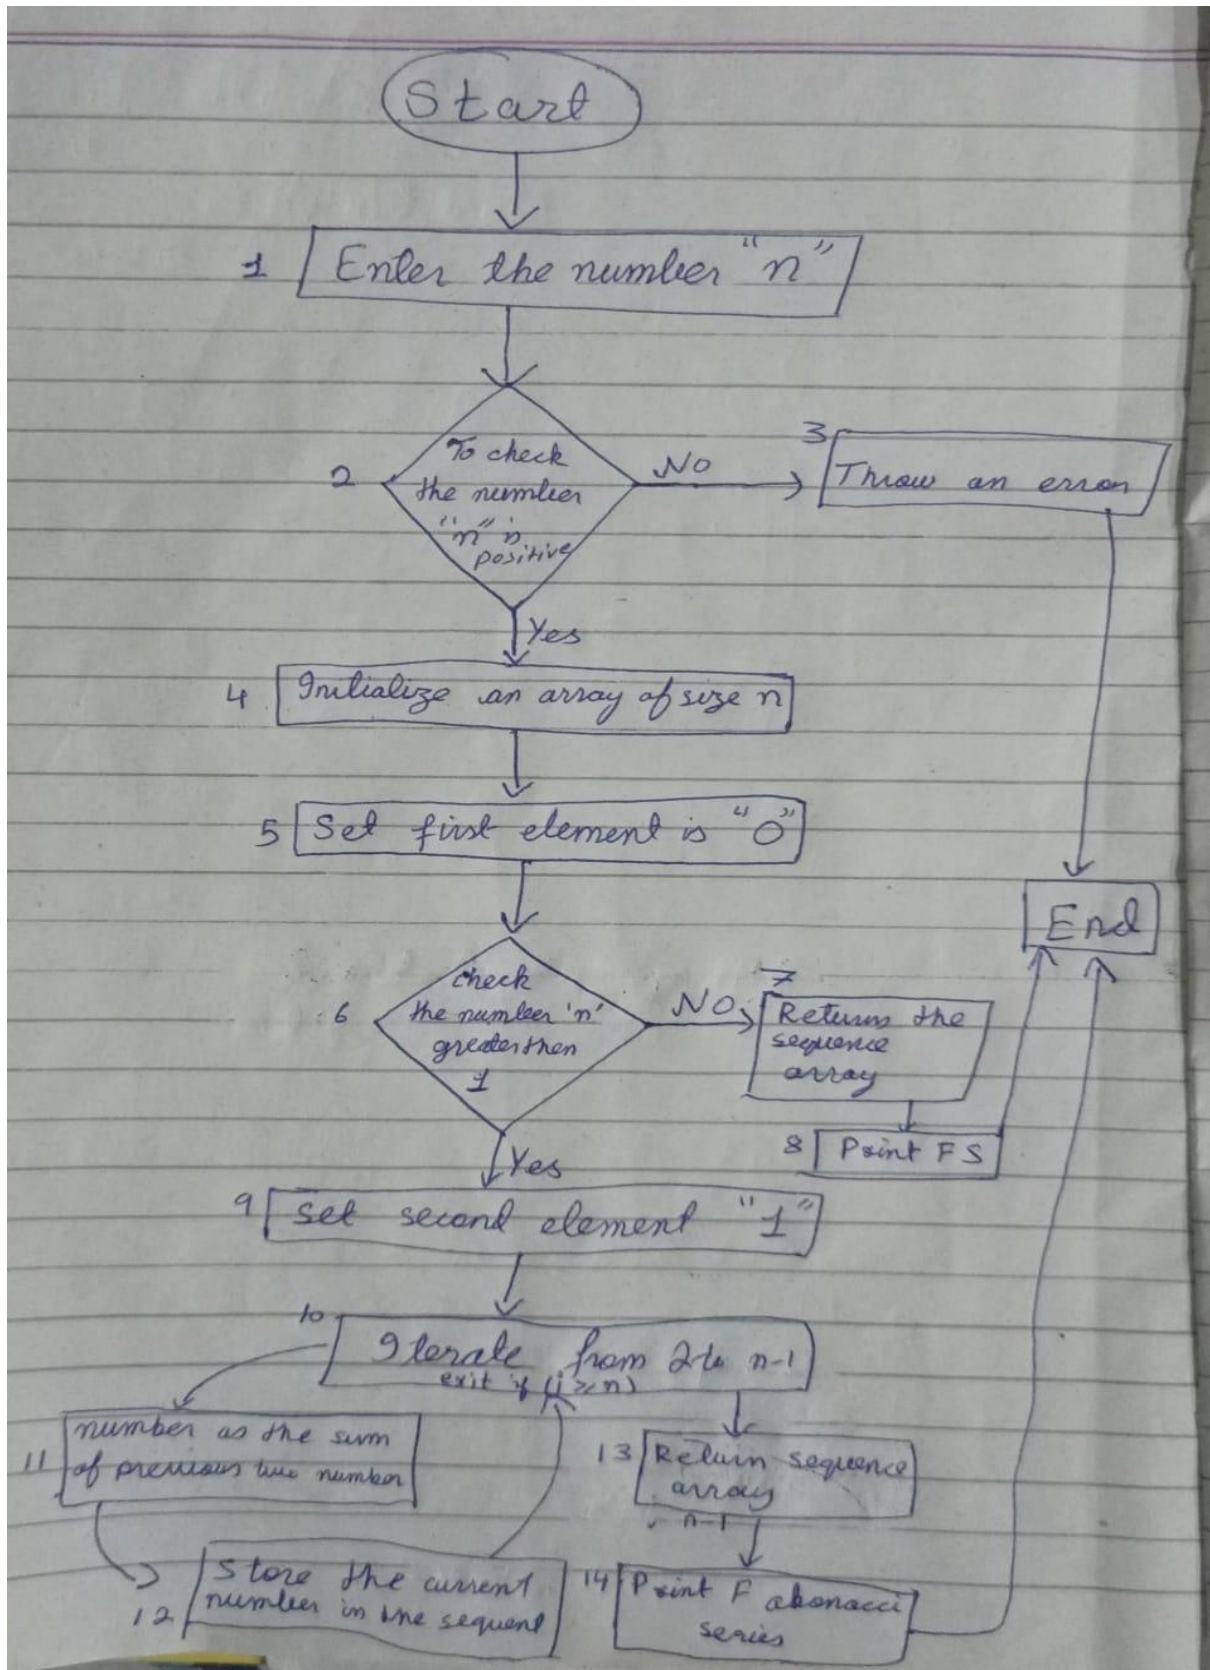 Start
1 Enter the number "n"
2 To check
the number
"n" is
positive
No
3
Throw an error
Yes
4 Initialize an array of size n
5 Set first element is "0"
End
6 check
the number 'n'
greater then
1
NO
7
Returns the
sequence
array
8 Print FS
Yes
9 Set second element "1"
10
Iterate from 2 to n-1
exit if (i>=n)
11 number as the sum
of previous two number
12 Store the current
number in the sequent
13 Return sequence
array
n-1
14 Print Fabonacci
series